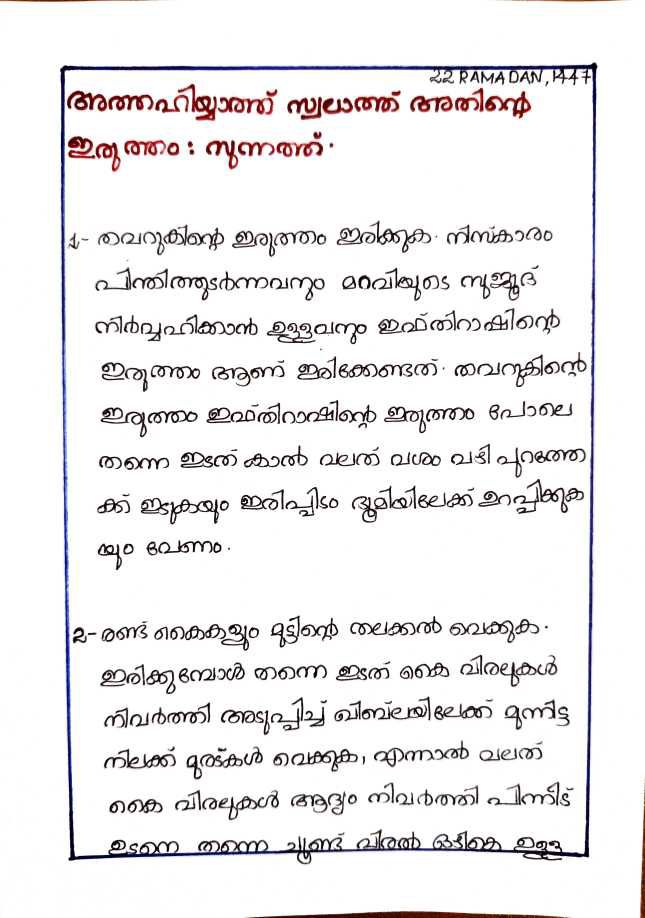 22 RAMADAN, 1447
അത്തഹിയ്യാത്ത് സ്വലാത്ത് അതിന്റെ
ഇരുത്തം : സുന്നത്ത്.
1- തവറുകിന്റെ ഇരുത്തം ഇരിക്കുക. നിസ്കാരം
പിന്തിത്തുടർന്നവനും മറവിയുടെ സുജൂദ്
നിർവ്വഹിക്കാൻ ഉള്ളവനും ഇഫ്തിറാഷിന്റെ
ഇരുത്തം ആണ് ഇരിക്കേണ്ടത്. തവറുകിന്റെ
ഇരുത്തം ഇഫ്തിറാഷിന്റെ ഇരുത്തം പോലെ
തന്നെ ഇടത് കാൽ വലത് വശം വഴി പുറത്തേ
ക്ക് ഇടുകയും ഇരിപ്പിടം ഭൂമിയിലേക്ക് ഉറപ്പിക്കുക
യും വേണം.
2- രണ്ട് കൈകളും മുട്ടിന്റെ തലക്കൽ വെക്കുക.
ഇരിക്കുമ്പോൾ തന്നെ ഇടത് കൈ വിരലുകൾ
നിവർത്തി അടുപ്പിച്ച് ഖിബ്ലയിലേക്ക് മുന്നിട്ട
നിലക്ക് മുരട്കൾ വെക്കുക, എന്നാൽ വലത്
കൈ വിരലുകൾ ആദ്യം നിവർത്തി പിന്നീട്
ഉടനെ തന്നെ ചൂണ്ട് വിരൽ ഒഴികെ ഉള്ള